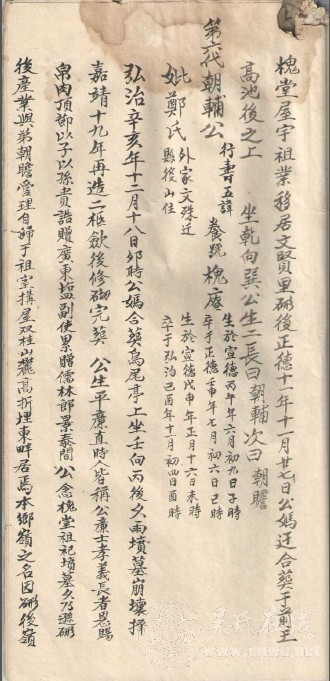 槐堂屋宇祖業移居文賢里弼後正德十一年十一月廿七日公媽迁合葬于前王
高池後之上　坐乾向巽公生二長曰朝輔次曰朝瞻
第六代朝輔公　行壽五諱　養號槐庵　生於宣德丙午年六月初九日子時
卒于正德壬申年七月初六日巳時
妣鄭氏　外家文殊迁縣後山住　生於宣德戊申年正月十六日未時
卒于弘治己酉年十月初四日酉時
弘治辛亥年十二月十八日卯時公媽合葬烏尾亭上坐壬向丙後久雨墳墓崩壞擇
嘉靖十九年再造二柩歛後修砌完葬　公生平廉直時人皆稱公廉士孝義長者恩賜
帛肉頂部以子以孫貴誥贈廣東塩副使累贈儒林郎景泰間公念槐堂祖祀墳墓久乃遜弼
後產業與弟朝瞻愛理自歸于祖宗搆屋双桂山麓高折埋東畔居焉本鄉嶺之名因弼後嶺
吳氏在线
www.cnwu.net